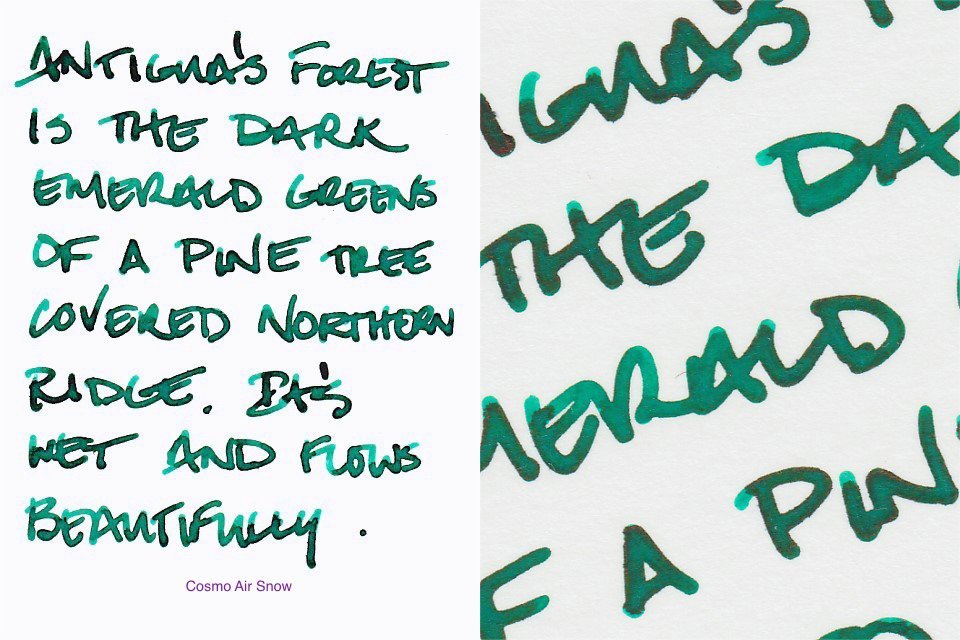 ANTIGUA'S FOREST
IS THE DARK
EMERALD GREENS
OF A PINE TREE
COVERED NORTHERN
RIDGE.
WET AND FLOWS
BEAUTIFULLY .
Cosmo Air Snow
TIGUA'S
THE DA
MERALD
F A PIN